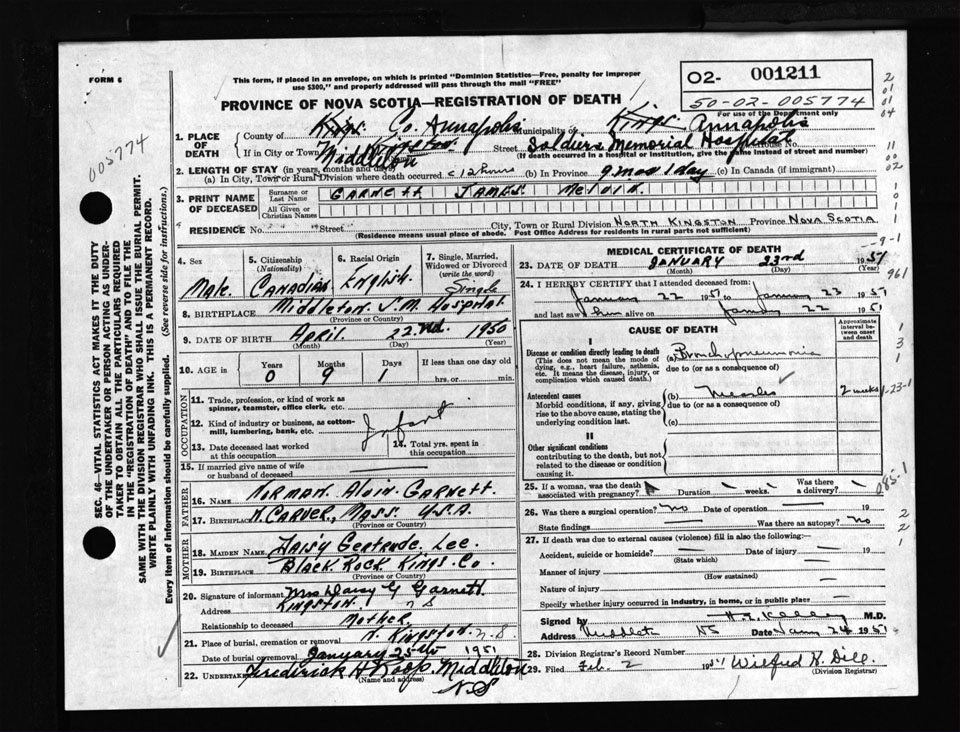 FORM 6
This form, if placed in an envelope, on which is printed "Dominion Statistics—Free, penalty for improper
use $300," and properly addressed will pass through the mail "FREE"
O2- 001211
50-02-005774
For use of the Department only
PROVINCE OF NOVA SCOTIA—REGISTRATION OF DEATH
005774
1. PLACE OF DEATH
County of Kings Co. Annapolis Municipality of Kings Annapolis
If in City or Town Middleton Street Soldiers Memorial Hospital House No.
(If death occurred in a hospital or institution, give the name instead of street and number)
2. LENGTH OF STAY (in years, months and days)
(a) In City, Town or Rural Division where death occurred <12 hours (b) In Province 9 mos 1 day (c) In Canada (if immigrant)
3. PRINT NAME OF DECEASED
Surname or Last Name GARNETT JAMES
All Given or Christian Names
RESIDENCE No. Street City, Town or Rural Division NORTH KINGSTON Province NOVA SCOTIA
(Residence means usual place of abode. Post Office Address for residents in rural parts not sufficient)
SEC. 46—VITAL STATISTICS ACT MAKES IT THE DUTY
OF THE UNDERTAKER OR PERSON ACTING AS UNDER-
TAKER TO OBTAIN ALL THE PARTICULARS REQUIRED
IN THE "REGISTRATION OF DEATH" AND TO FILE THE
SAME WITH THE DIVISION REGISTRAR WHO SHALL ISSUE THE BURIAL PERMIT.
WRITE PLAINLY WITH UNFADING INK. THIS IS A PERMANENT RECORD.
Every item of Information should be carefully supplied. (See reverse side for instructions.)
4. Sex
Male
5. Citizenship (Nationality)
Canadian
6. Racial Origin
English
7. Single, Married, Widowed or Divorced (write the word)
Single
8. BIRTHPLACE Middleton S.M. Hospital
(Province or Country)
9. DATE OF BIRTH April 22nd. 1950
(Month) (Day) (Year)
10. AGE in
Years Months Days If less than one day old
0 9 1 hrs. or min.
OCCUPATION
11. Trade, profession, or kind of work as
spinner, teamster, office clerk, etc.
12. Kind of industry or business, as cotton-
mill, lumbering, bank, etc. Infant
13. Date deceased last worked
at this occupation
14. Total yrs. spent in
this occupation
15. If married give name of wife
or husband of deceased
FATHER
16. NAME Norman Alvin Garnett
17. BIRTHPLACE N. Carver, Mass. USA
(Province or Country)
MOTHER
18. MAIDEN NAME Daisy Gertrude Lee
19. BIRTHPLACE Black Rock Kings Co
(Province or Country)
20. Signature of informant Mrs Daisy G Garnett
Address Kingston NS
Relationship to deceased Mother
21. Place of burial, cremation or removal N. Kingston N.S
Date of burial or removal January 25th 1951
22. UNDERTAKER Frederick H Roop, Middleton
(Name and address)
N.S
MEDICAL CERTIFICATE OF DEATH
23. DATE OF DEATH JANUARY 23rd 1951
(Month) (Day) (Year)
24. I HEREBY CERTIFY that I attended deceased from:
January 22 1951 to January 23 1951
and last saw him alive on January 22 1951
CAUSE OF DEATH
Approximate interval between onset and death
I
Disease or condition directly leading to death
(This does not mean the mode of
dying, e.g., heart failure, asthenia,
etc. It means the disease, injury, or
complication which caused death.)
(a) Bronchopneumonia
due to (or as a consequence of)
Antecedent causes
Morbid conditions, if any, giving
rise to the above cause, stating the
underlying condition last.
(b) Measles 2 weeks
due to (or as a consequence of)
(c)
II
Other significant conditions
contributing to the death, but not
related to the disease or condition
causing it.
25. If a woman, was the death
associated with pregnancy? Duration weeks. Was there a delivery?
26. Was there a surgical operation? no Date of operation 19
State findings Was there an autopsy? no
27. If death was due to external causes (violence) fill in also the following:—
Accident, suicide or homicide? Date of injury 19
(State which)
Manner of injury
(How sustained)
Nature of injury
Specify whether injury occurred in industry, in home, or in public place
Signed by M.D.
Address Middleton NS Date Jany 24 1951
28. Division Registrar's Record Number
29. Filed Feb. 2 1951 Wilfred H. Dill.
(Division Registrar)